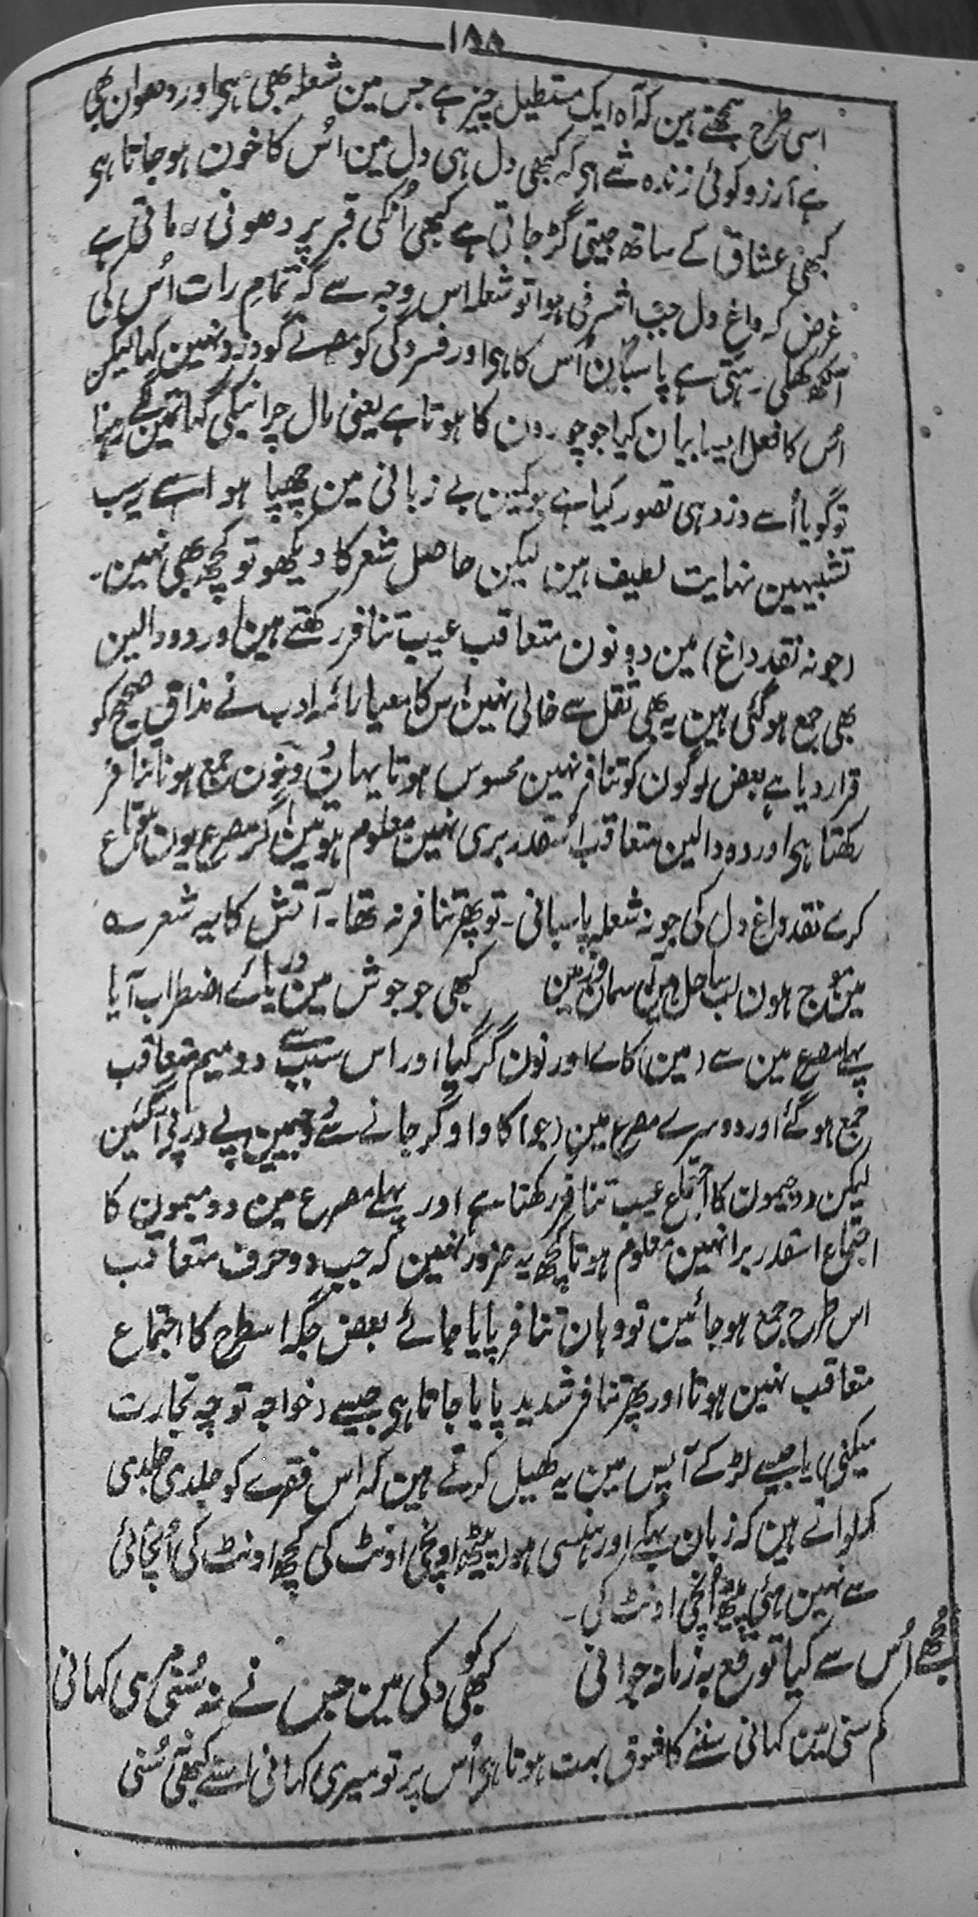 ۱۵۵
اسی طرح سمجھتے ہین کہ آہ ایک مستطیل چیز ہے جس مین شعلہ بھی ہی اور دھوان بھی
ہے آرزو کوئی زندہ شے ہی کہ کبھی دل ہی دل مین اُس کا خون ہو جاتا ہی
کبھی عشاق کے ساتھ جیتی گڑ جاتی ہے کبھی اُنکی قبر پر دھونی رماتی ہے
غرض کہ داغ دل جب اشرفی ہوا تو شعلہ اس وجہ سے کہ تمام رات اُس کی
آنکھ کھلی رہتی ہے پاسبان اُس کا ہی اور فسردگی کو مصنے گو دزد نہین کہا لیکن
اُس کا فعل ایسا بیان کیا جو چورون کا ہوتا ہے یعنی مال چرانیکی گھات مین لگے رہنا
تو گویا اُسے دزد ہی تصور کیا ہے جو کمین بے زبانی مین چھپا ہوا ہے یہ سب
تشبیہین نہایت لطیف ہین لیکن حاصل شعر کا دیکھو تو کچھ بھی نہین۔
(جو نہ نقد داغ) مین دو نون متعاقب عیب تنافر رکھتے ہین اور دو دالین
بھی جمع ہو گئی ہین یہ بھی ثقل سے خالی نہین اس کا معیار ائمہ ادب نے مذاق صحیح کو
قرار دیا ہے بعض لوگون کو تنافر نہین محسوس ہوتا یہان دو نون جمع ہونا تنافر
رکھتا ہی اور دو دالین متعاقب اسقدر بری نہین معلوم ہوتین اگر مصرع یون ہوتا ع
کرے نقد داغ دل کی جو نہ شعلہ پاسبانی۔ تو پھر تنافر نہ تھا۔ آتش کا یہ شعر ے
مین موج ہون لب ساحل ہین آسمان و زمین کبھی جو جوش مین دریا کے اضطراب آیا
پہلے مصرع مین سے (مین) کا ے اور نون گر گیا اور اس سبب سے دو میم متعاقب
جمع ہو گئے اور دوسرے مصرع مین (جو) کا واو گر جانے سے دو جیمین پے در پے آ گئین
لیکن دو جیمون کا اجتماع عیب تنافر رکھتا ہے اور پہلے مصرع مین دو میمون کا
اجتماع اسقدر برا نہین معلوم ہوتا کچھ یہ ضرور نہین کہ جب دو حرف متعاقب
اس طرح جمع ہو جائین تو وہان تنافر پایا جائے بعض جگہ اسطرح کا اجتماع
متعاقب نہین ہوتا اور پھر تنافر شدید پایا جاتا ہی جیسے (خواجہ تو چہ تجارت
میکنی) یا جیسے لڑکے آپس مین یہ کھیل کرتے ہین کہ اس فقرے کو جلدی جلدی
کہلواتے ہین کہ زبان بہکے اور ہنسی ہو (پیٹھ اونچی اونٹ کی کچھ اونٹ کی اُنچائی
سے نہین ہئی پیٹھ اُنچی اونٹ کی۔
مجھے اُس سے کیا توقع بہ زمانہ جوانی کبھی کودکی مین جس نے نہ سُنی مری کہانی
کم سنی مین کہانی سننے کا شوق بہت ہوتا ہی اُس پر تو میری کہانی اسنے کبھی نہ سُنی